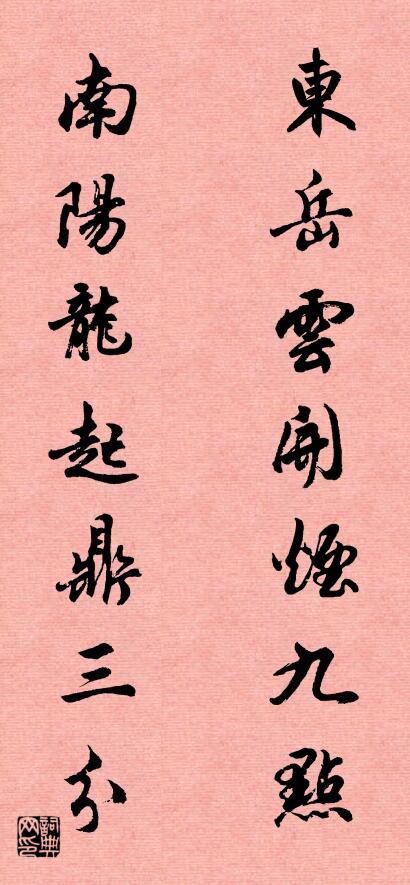 東岳雲開煙九點
南陽龍起鼎三分
詞典網印